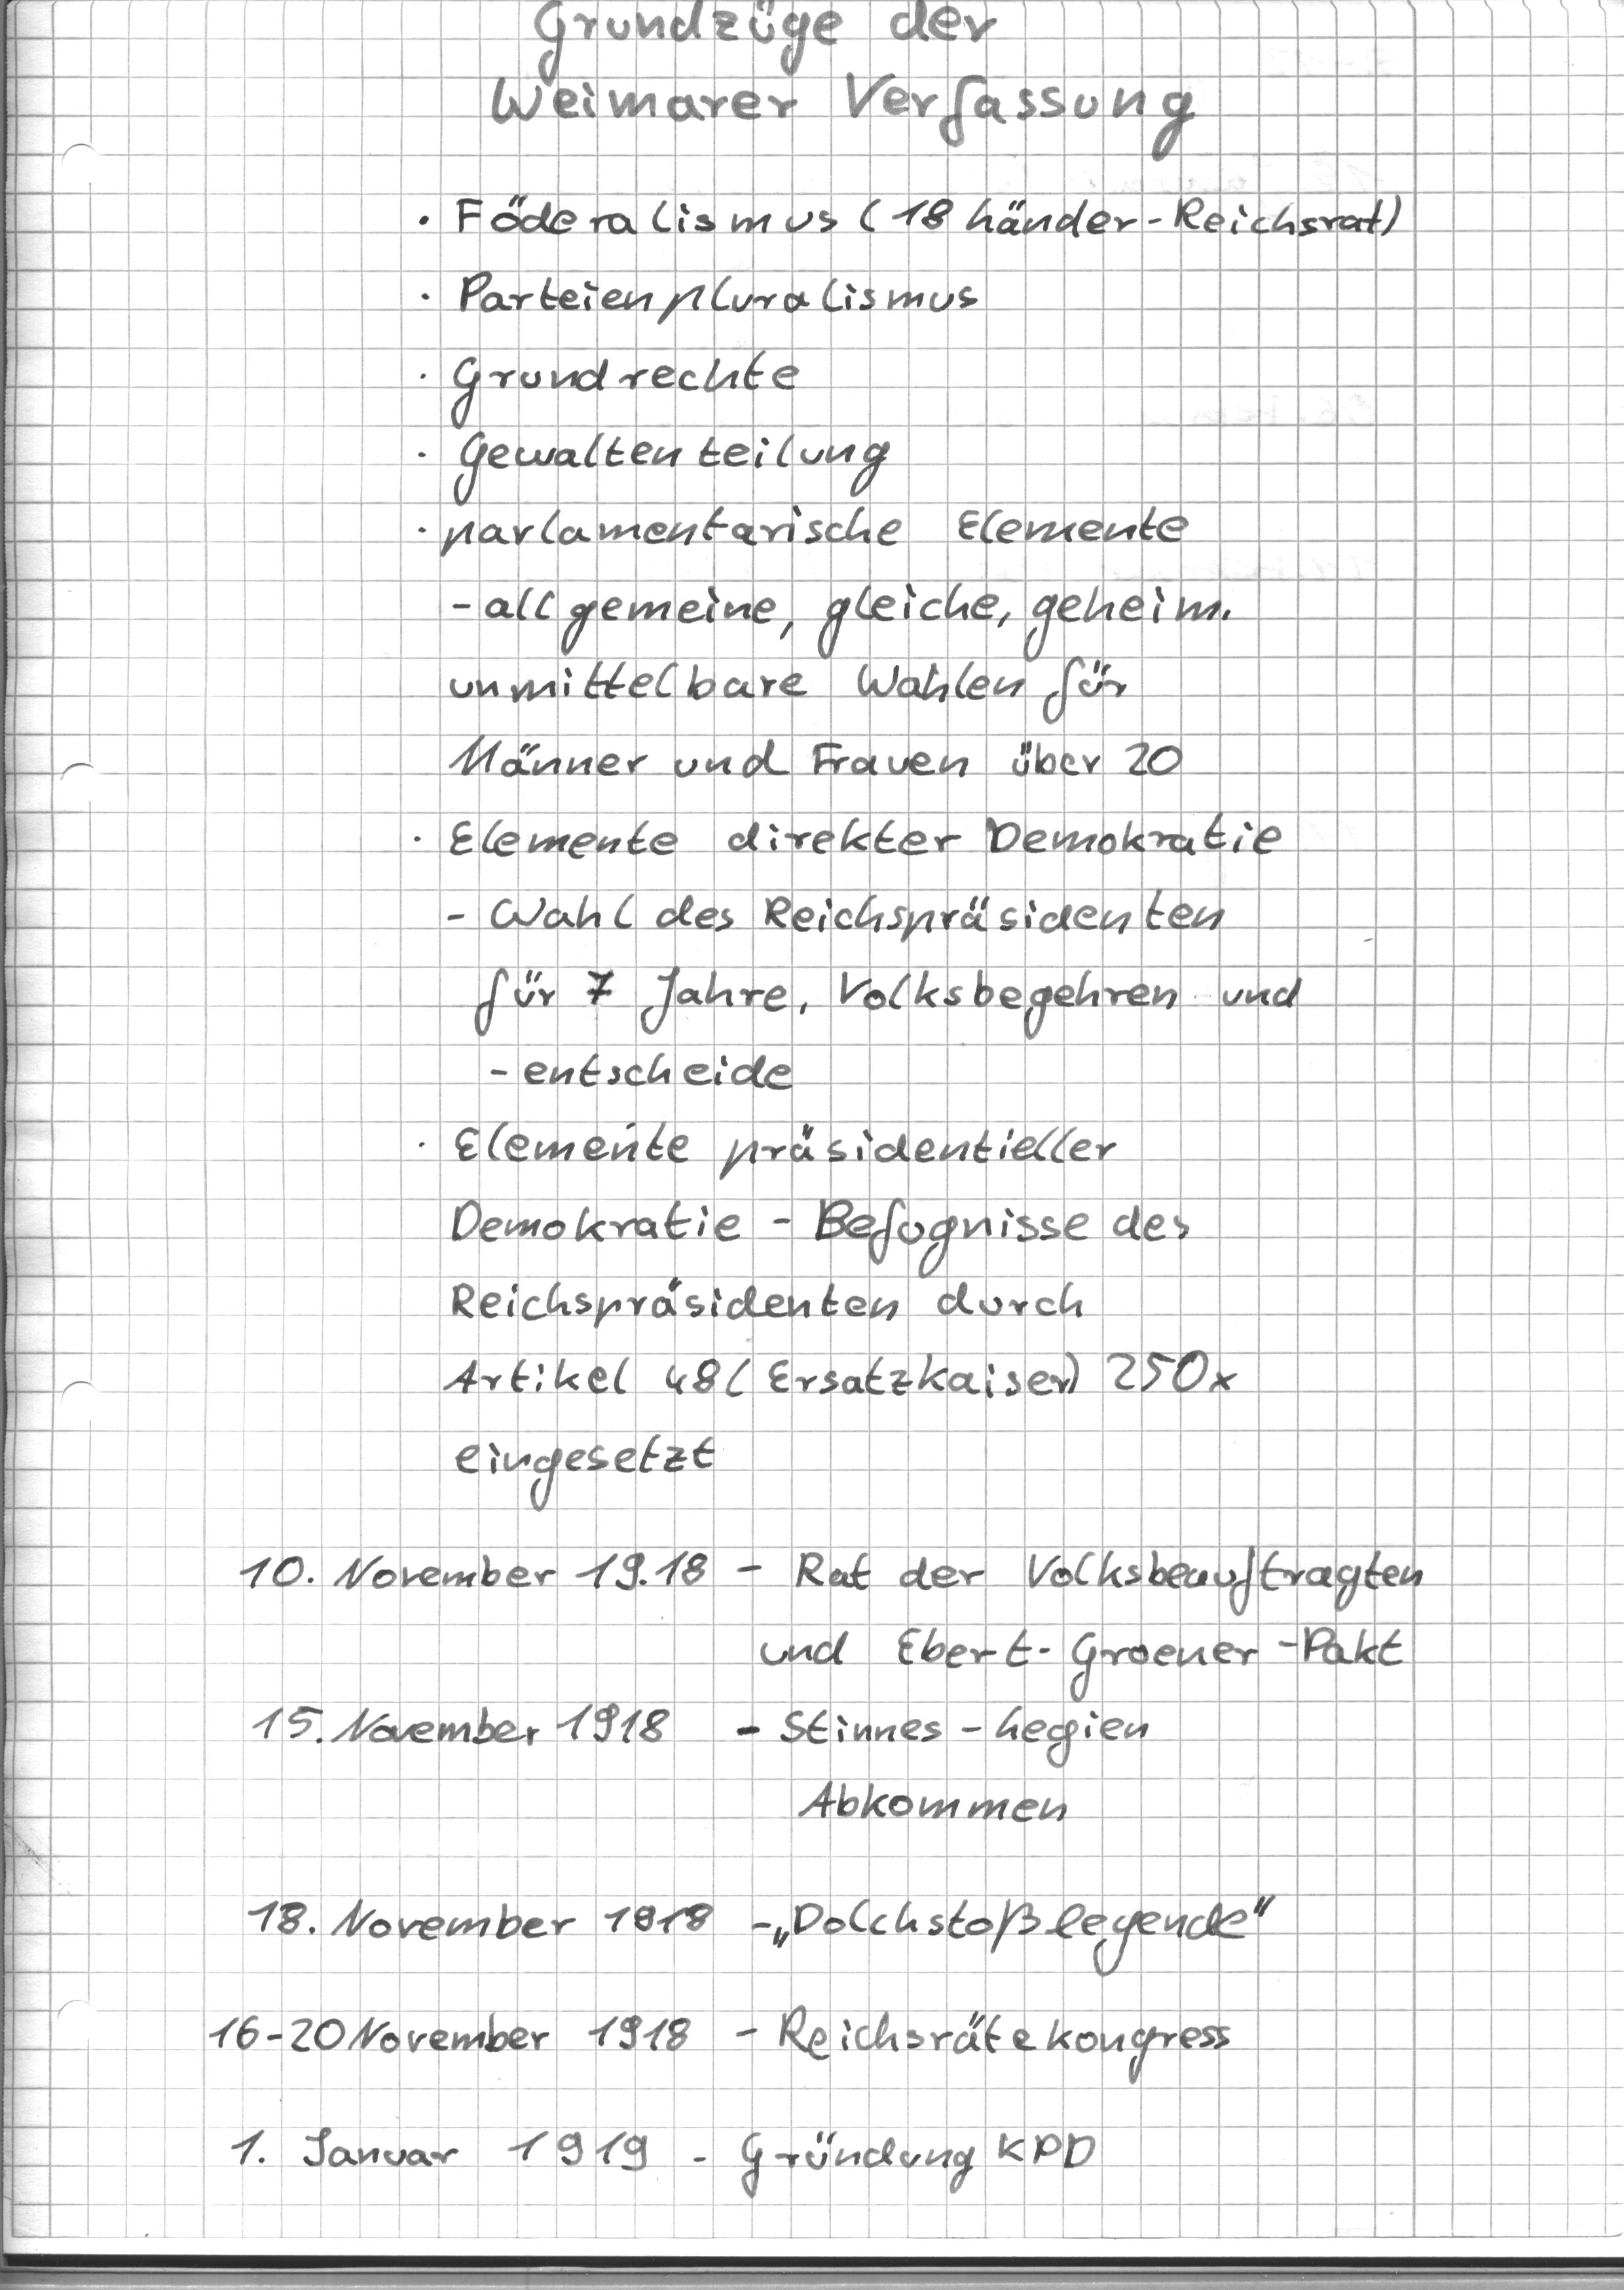 Grundzüge der
Weimarer Verfassung
· Föderalismus (18 Länder-Reichsrat)
· Parteienpluralismus
· Grundrechte
· Gewaltenteilung
· parlamentarische Elemente
- allgemeine, gleiche, geheim.
unmittelbare Wahlen für
Männer und Frauen über 20
· Elemente direkter Demokratie
- Wahl des Reichspräsidenten
für 7 Jahre, Volksbegehren und
- entscheide
· Elemente präsidentieller
Demokratie - Befugnisse des
Reichspräsidenten durch
Artikel 48 (Ersatzkaiser) 250x
eingesetzt
10. November 19.18 - Rat der Volksbeauftragten
und Ebert-Groener-Pakt
15. November 1918 - Stinnes-Legien
Abkommen
18. November 1918 - „Dolchstoßlegende"
16-20 November 1918 - Reichsrätekongress
1. Januar 1919 - Gründung KPD